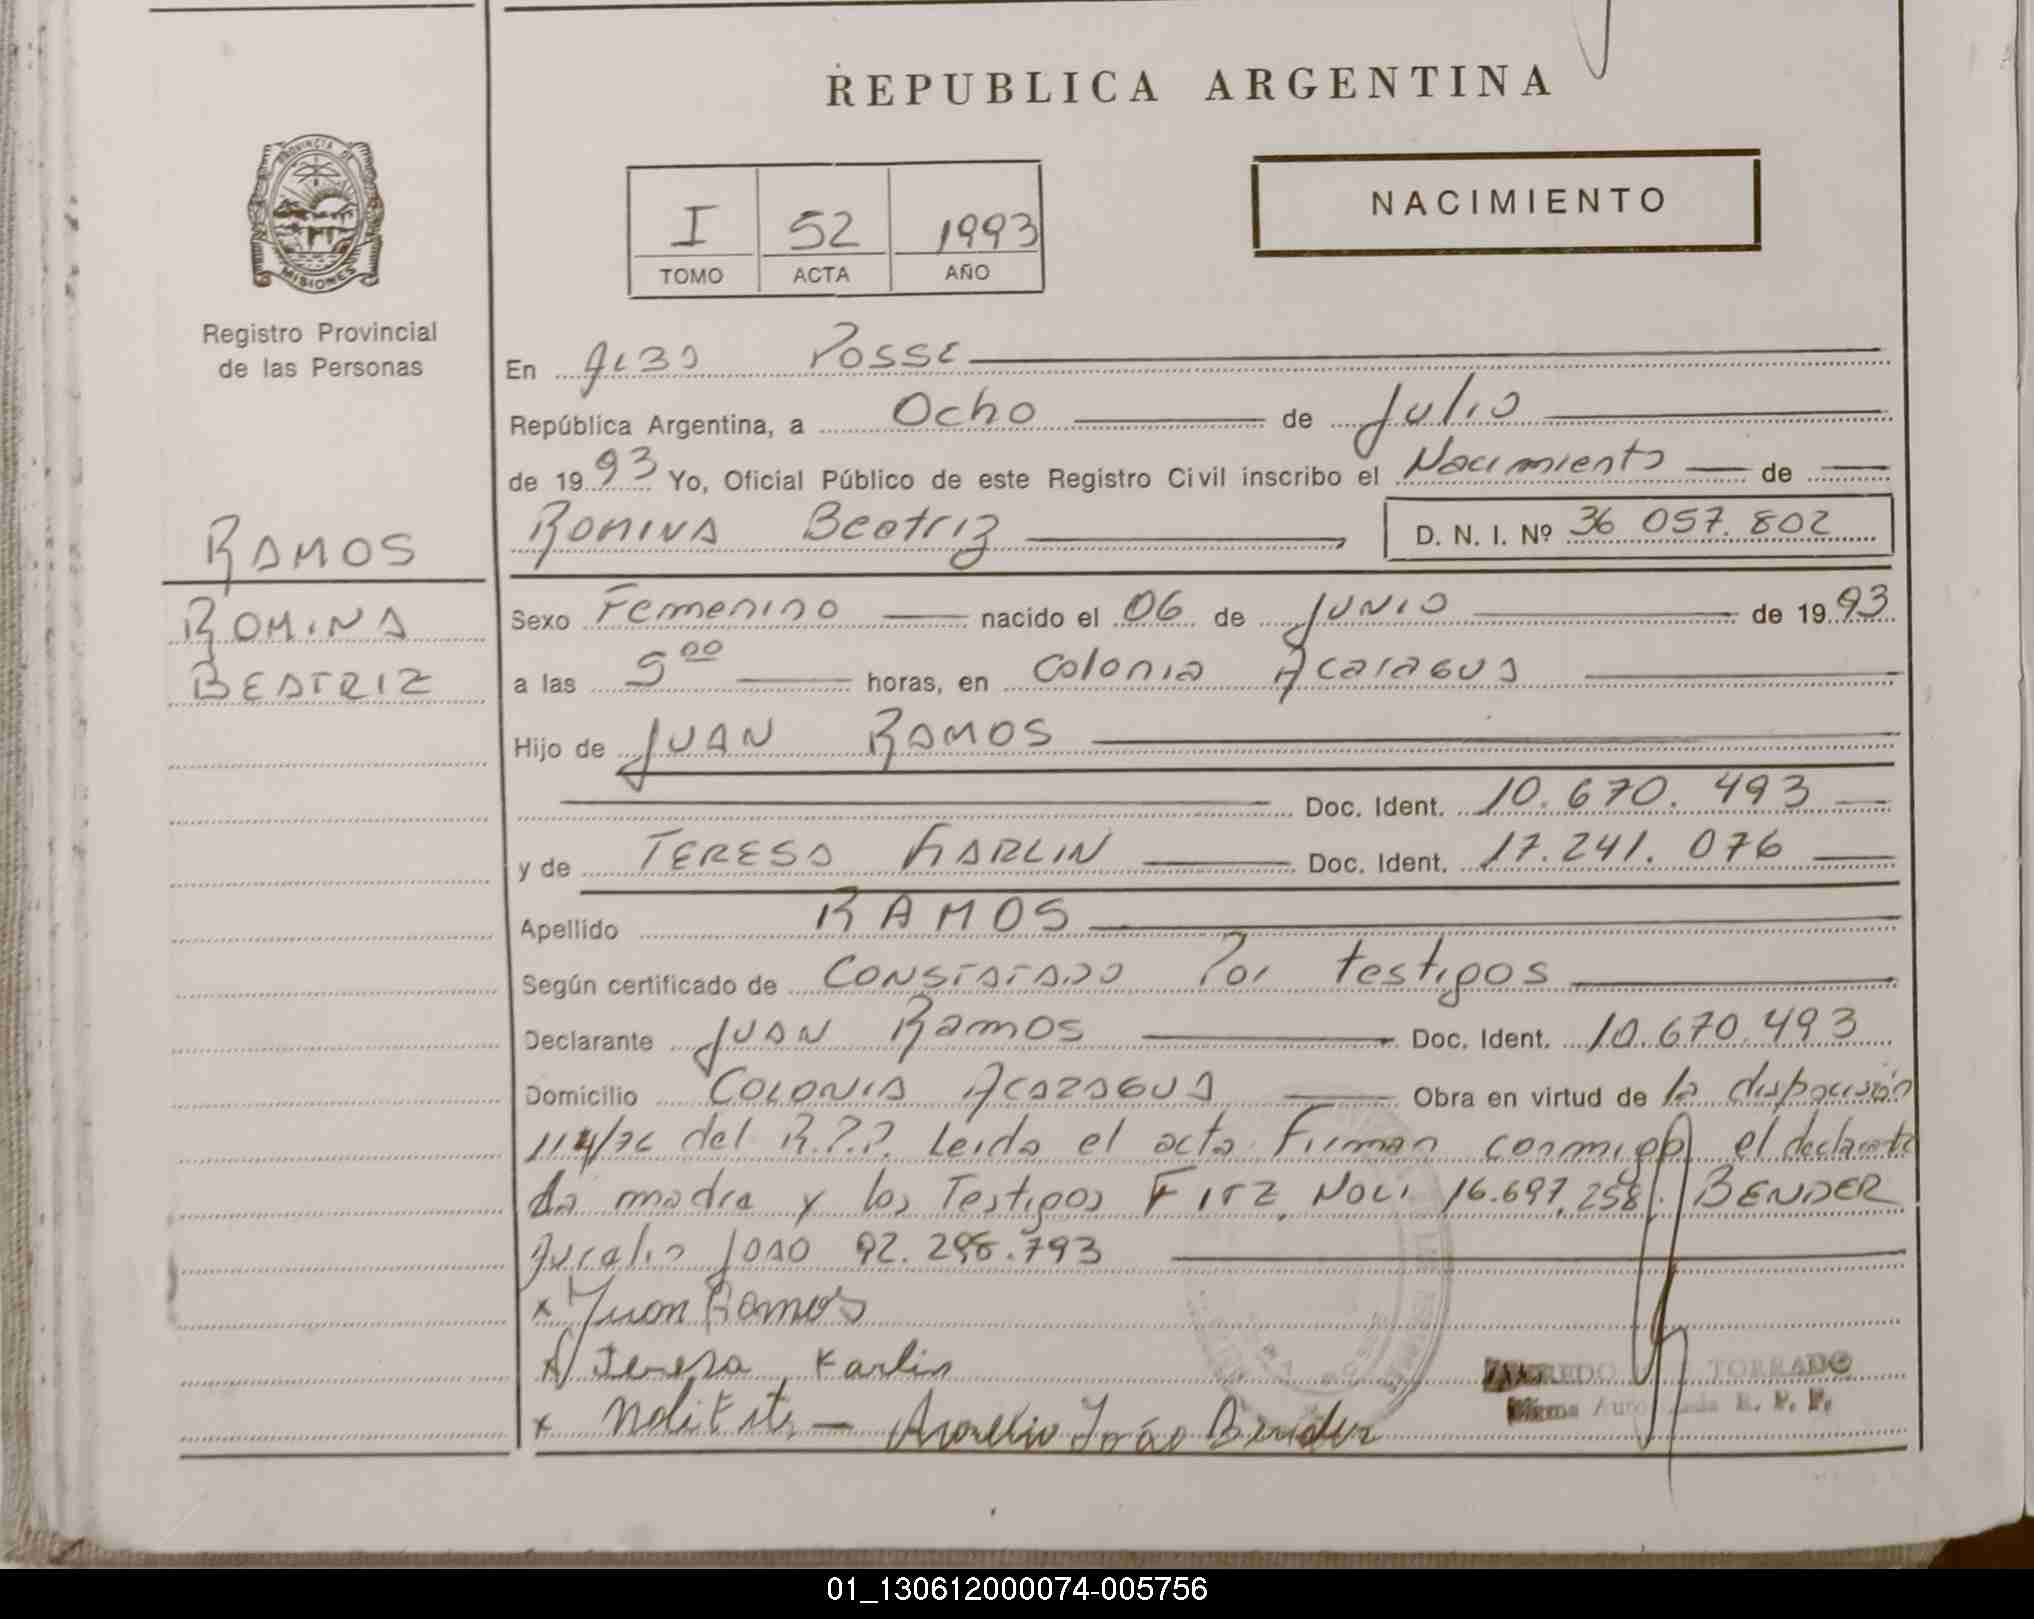 REPUBLICA ARGENTINA
PROVINCIA DE MISIONES
Registro Provincial
de las Personas
I 52 1993
TOMO ACTA AÑO
NACIMIENTO
En ALBA POSSE
República Argentina, a Ocho de Julio
de 1993 Yo, Oficial Público de este Registro Civil inscribo el Nacimiento de
ROMINA Beatriz D. N. I. Nº 36 057.802
RAMOS
ROMINA
BEATRIZ
Sexo Femenino nacido el 06 de JUNIO de 1993
a las 5 00 horas, en Colonia Acaragua
Hijo de JUAN RAMOS
Doc. Ident. 10.670.493
y de TERESA KARLIN Doc. Ident. 17.241.076
Apellido RAMOS
Según certificado de CONSTATADO Por testigos
Declarante JUAN Ramos Doc. Ident. 10.670.493
Domicilio COLONIA ACARAGUA Obra en virtud de la disposición
114/76 del R.P.P. Leida el acta Firman conmigo el declarante
La madre y los Testigos FITZ NOLI 16.697.258. BENDER
JOAO 92.298.793
x Juan Ramos
x Teresa Karlin
x Noli Fitz - Aurelio João Bender
TORRADO
Firma R. P. P.
01_130612000074-005756